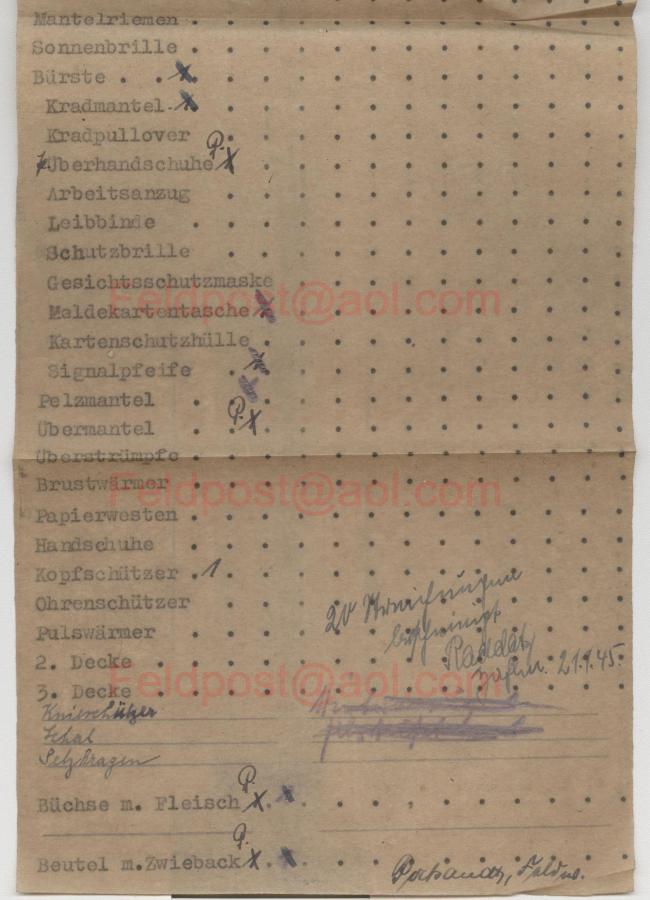 Mantelriemen
Sonnenbrille
Bürste x
Kradmantel x
Kradpullover
Überhandschuhe P. x
Arbeitsanzug
Leibbinde
Schutzbrille
Gesichtsschutzmaske
Feldpost@aol.com
Meldekartentasche x
Kartenschutzhülle
Signalpfeife x
Pelzmantel
Übermantel P. x
Überstrümpfe
Brustwärmer
Feldpost@aol.com
Papierwesten
Handschuhe
Kopfschützer 1
Ohrenschützer
Pulswärmer
bescheinigt
2. Decke
21.1.45.
3. Decke
Feldpost@aol.com
Knieschützer
Schal
Pelzkragen
Büchse m. Fleisch P. x x
Beutel m.Zwieback P. x x